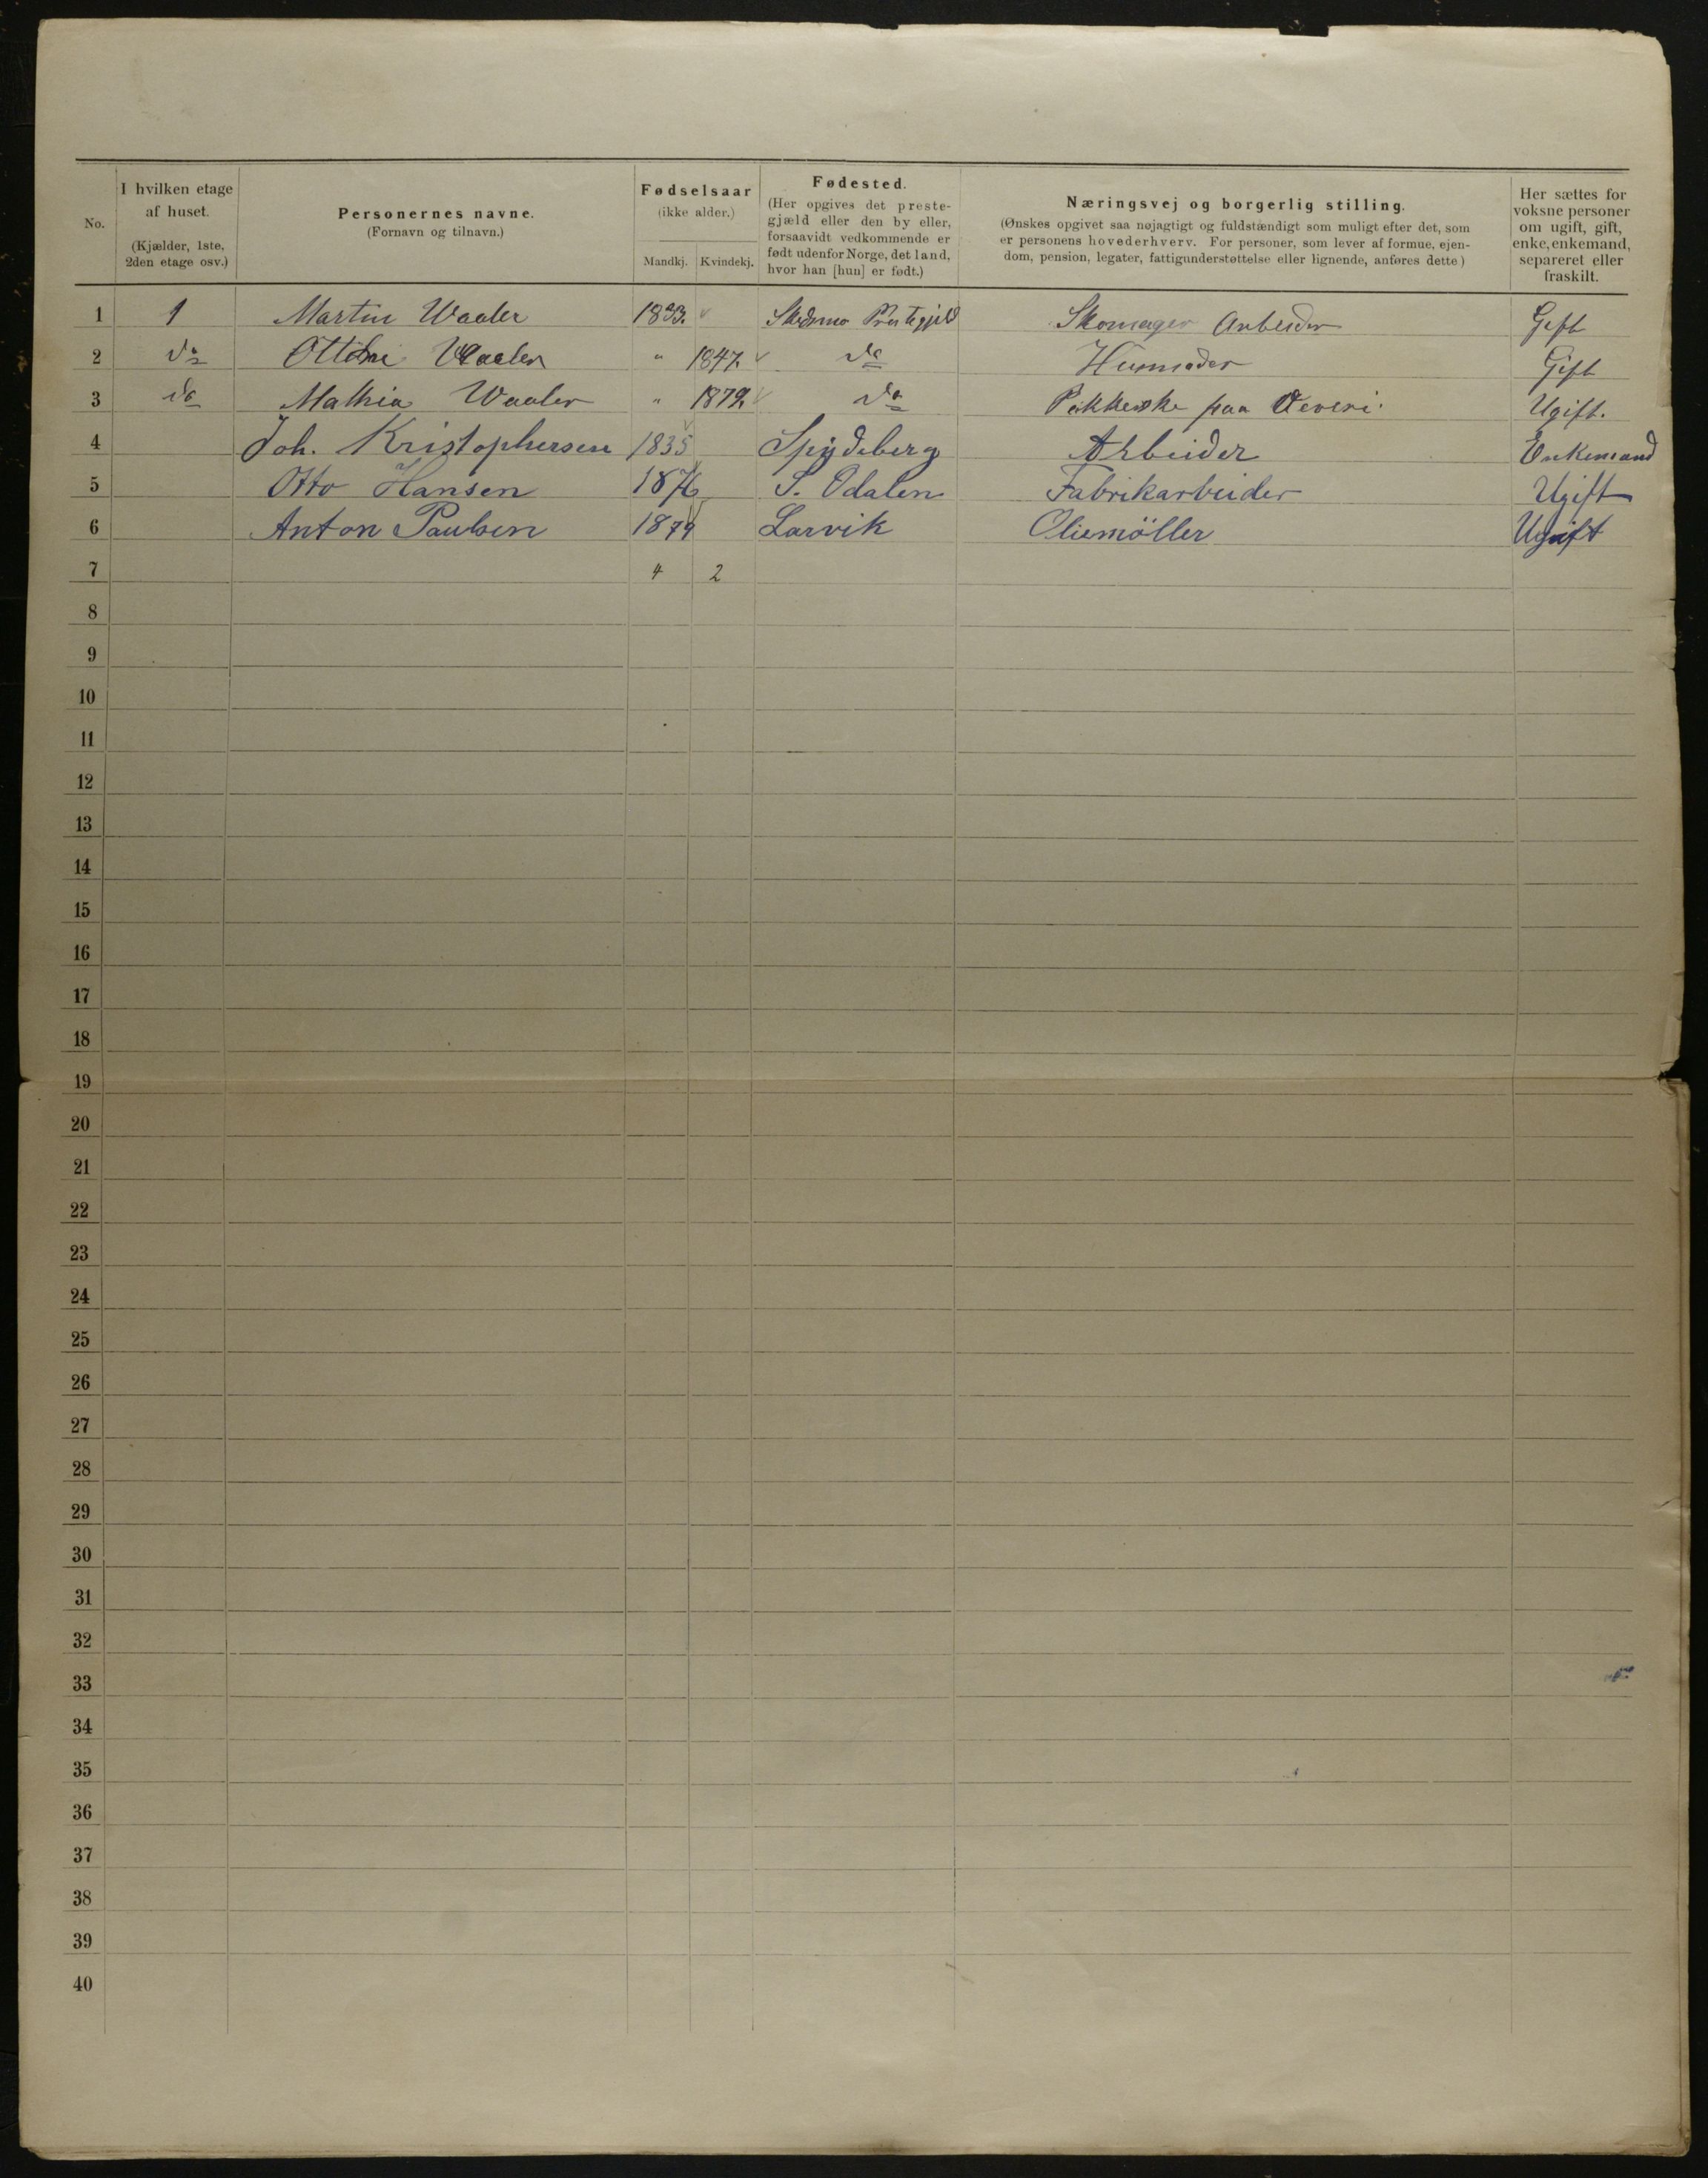 No.
I hvilken etage
af huset.
(Kjælder, 1ste,
2den etage osv.)
Personernes navne.
(Fornavn og tilnavn.)
Fødselsaar
(ikke alder.)
Mandkj. Kvindekj.
Fødested.
(Her opgives det preste-
gjæld eller den by eller,
forsaavidt vedkommende er
født udenfor Norge, det land,
hvor han [hun] er født.)
Næringsvej og borgerlig stilling.
(Ønskes opgivet saa nøjagtigt og fuldstændigt som muligt efter det, som
er personens hovederhverv. For personer, som lever af formue, ejen-
dom, pension, legater, fattigunderstøttelse eller lignende, anføres dette)
Her sættes for
voksne personer
om ugift, gift,
enke, enkemand,
separeret eller
fraskilt.
1 1 Martin Waaler 1833. Skedsmo Prestegjeld Skomager Arbeider Gift
2 do Waaler " 1847. do Husmoder Gift
3 do Mathia Waaler " 1879. do paa Veveri. Ugift.
4 Joh. Kristophersen 1835 Spydeberg Arbeider Enkemand
5 Otto Hansen 1876 S. Odalen Fabrikarbeider Ugift
6 Anton Paulsen 1879 Larvik Oliemöller Ugift
7 4 2
8
9
10
11
12
13
14
15
16
17
18
19
20
21
22
23
24
25
26
27
28
29
30
31
32
33
34
35
36
37
38
39
40